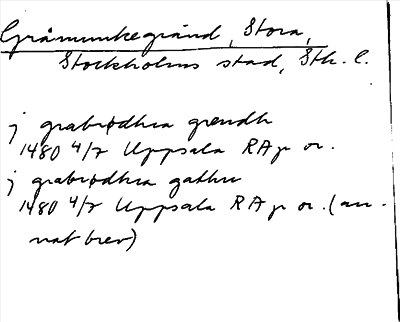 Gråmunkegränd, Stora,
Stockholms stad, Sth. l.
j grabrødhra grendh
1480 4/7 Uppsala RAp or.
j grabrødhra gathu
1480 4/7 Uppsala RAp or. (an-
nat brev)